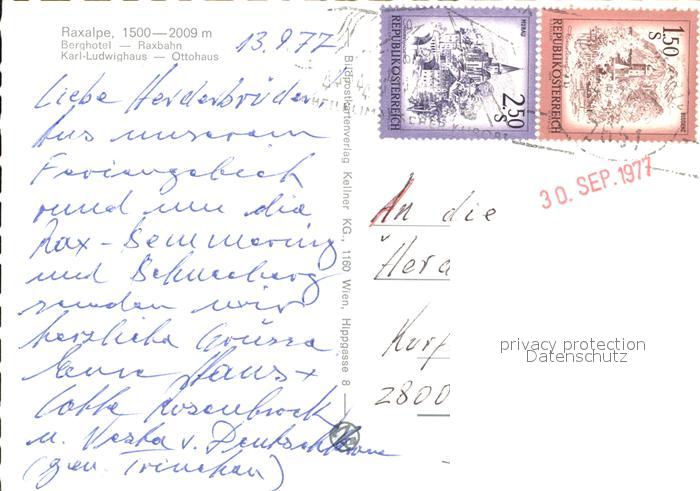 Raxalpe, 1500—2009 m
Berghotel — Raxbahn
Karl-Ludwighaus — Ottohaus
13.9.77
Liebe Herderbrüder
Aus unserem
Feriengebiet
rund um die
Rax-Semmering
und Schneeberg
senden wir
herzliche Grüsse
Eure Hans +
Lotte Rosenbrock
u. Veska v. Deutschkrone
(gen. Trinchen)
Bildpostkartenverlag Kellner KG., 1160 Wien, Hippgasse 8
REPUBLIK ÖSTERREICH
2.50 S
REPUBLIK ÖSTERREICH
1.50 S
30. SEP. 1977
An die
Herd
Kurf
2800
privacy protection
Datenschutz